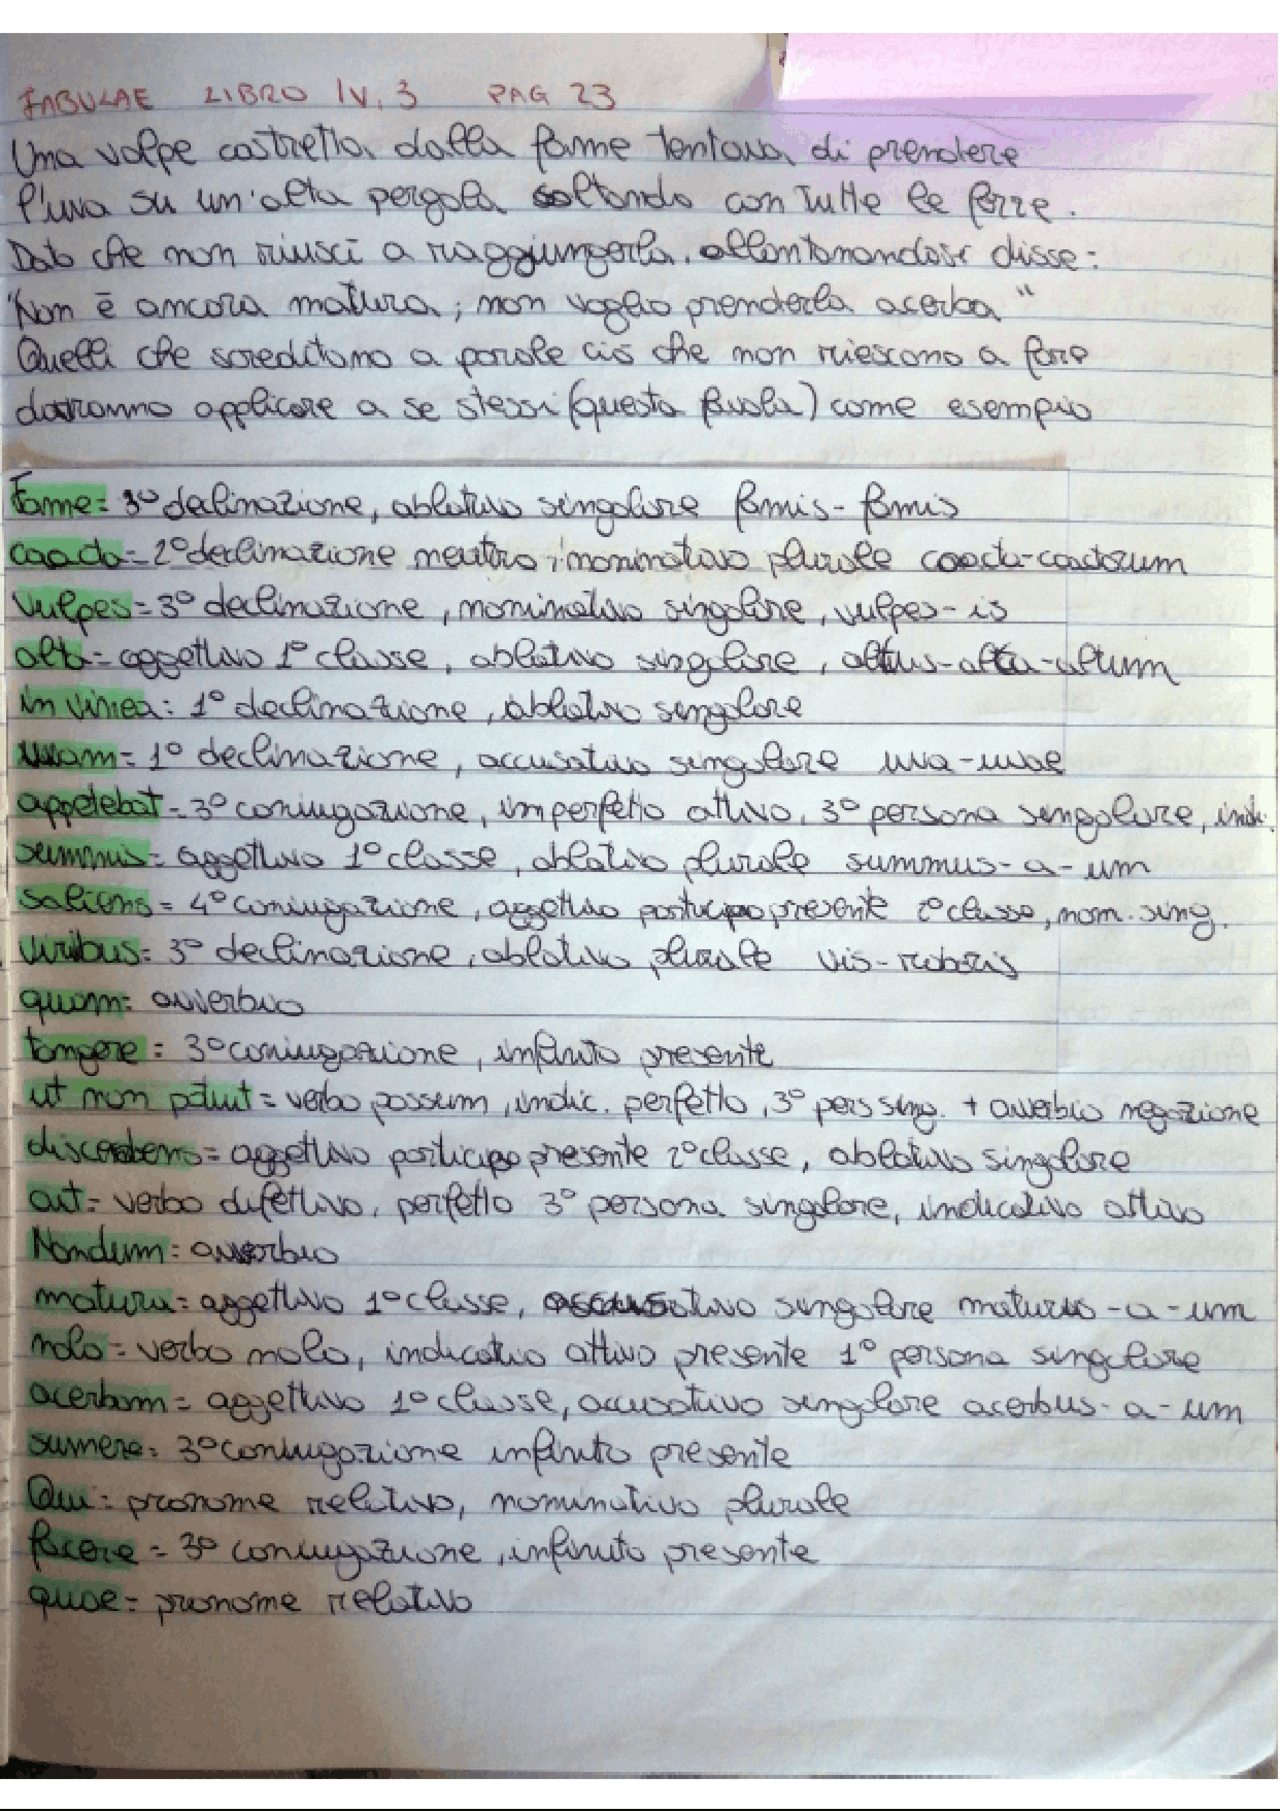 FABULAE LIBRO IV, 3 PAG 23
Una volpe costretta dalla fame tentava di prendere
l'uva su un'alta pergola saltando con tutte le forze.
Dato che non riuscì a raggiungerla, allontanandosi disse:
"Non è ancora matura; non voglio prenderla acerba"
Quelli che screditano a parole ciò che non riescono a fare
dovranno applicare a se stessi (questa favola) come esempio
Fame= 3° declinazione, ablativo singolare famis-famis
coacta= 2° declinazione neutro, nominativo plurale coacta-coactorum
vulpes= 3° declinazione, nominativo singolare, vulpes-is
alta= aggettivo 1° classe, ablativo singolare, altus-alta-altum
in vinea: 1° declinazione, ablativo singolare
uvam= 1° declinazione, accusativo singolare uva-uvae
appetebat= 3° coniugazione, imperfetto attivo, 3° persona singolare, indi.
summis= aggettivo 1° classe, ablativo plurale summus-a-um
saliens= 4° coniugazione, aggettivo participio presente 2° classe, nom. sing.
viribus: 3° declinazione, ablativo plurale vis-roboris
quam: avverbio
tangere: 3° coniugazione, infinito presente
ut non potuit= verbo possum, indic. perfetto, 3° pers sing. + avverbio negazione
discedens= aggettivo participio presente 2° classe, ablativo singolare
ait= verbo difettivo, perfetto 3° persona singolare, indicativo attivo
Nondum: avverbio
matura= aggettivo 1° classe, singolare maturus-a-um
nolo= verbo nolo, indicativo attivo presente 1° persona singolare
acerbam= aggettivo 1° classe, accusativo singolare acerbus-a-um
sumere: 3° coniugazione infinito presente
Qui: pronome relativo, nominativo plurale
facere= 3° coniugazione, infinito presente
quae= pronome relativo